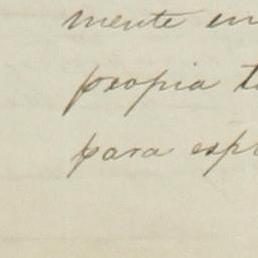 mente en
propia t
para esp